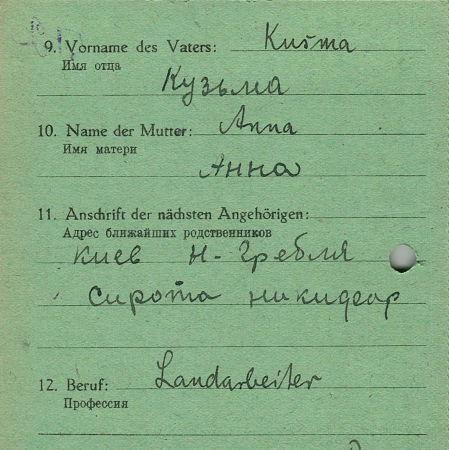 9. Vorname des Vaters: Kusma
Имя отца
Кузьма
10. Name der Mutter: Anna
Имя матери
Анна
11. Anschrift der nächsten Angehörigen:
Адрес ближайших родственников
Киев Н-Гребля
Сирота Никифор
12. Beruf: Landarbeiter
Профессия